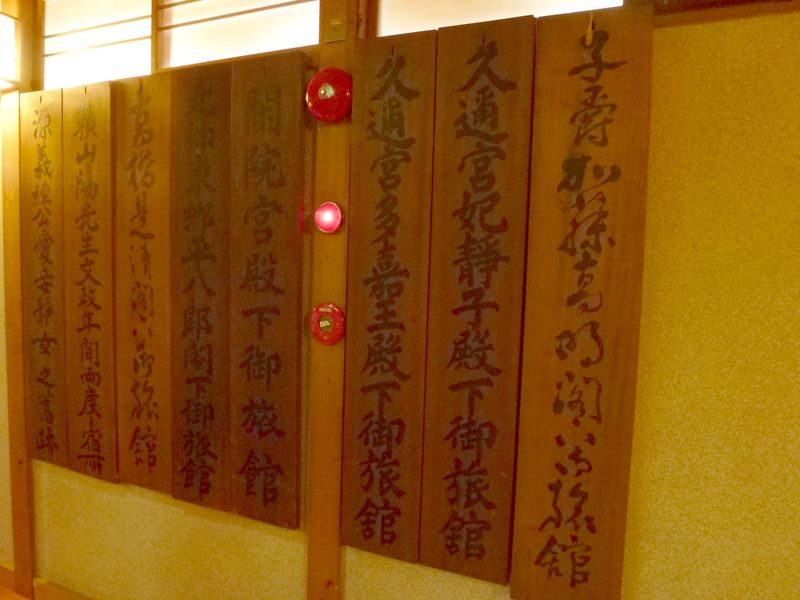 子爵加藤高明閣下御旅館
久邇宮妃静子殿下御旅館
久邇宮多嘉王殿下御旅館
閑院宮殿下御旅館
元帥東郷平八郎閣下御旅館
高橋是清閣下御旅館
頼山陽先生文政年間両度宿
源義経公愛妾静女之旧跡